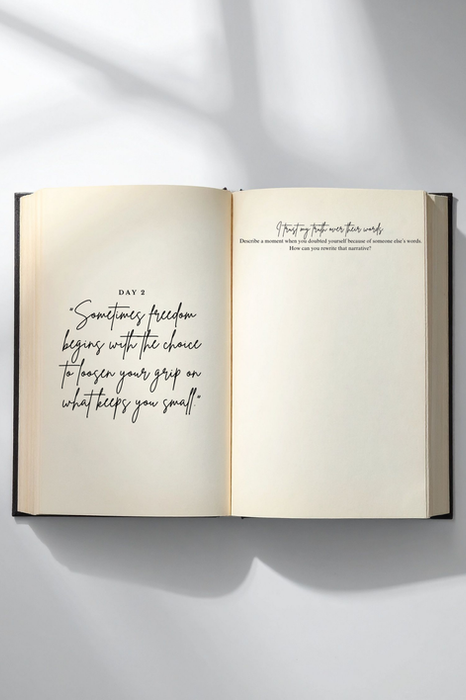 DAY 2
"Sometimes freedom
begins with the choice
to loosen your grip on
what keeps you small"
I trust my truth over their words
Describe a moment when you doubted yourself because of someone else's words.
How can you rewrite that narrative?